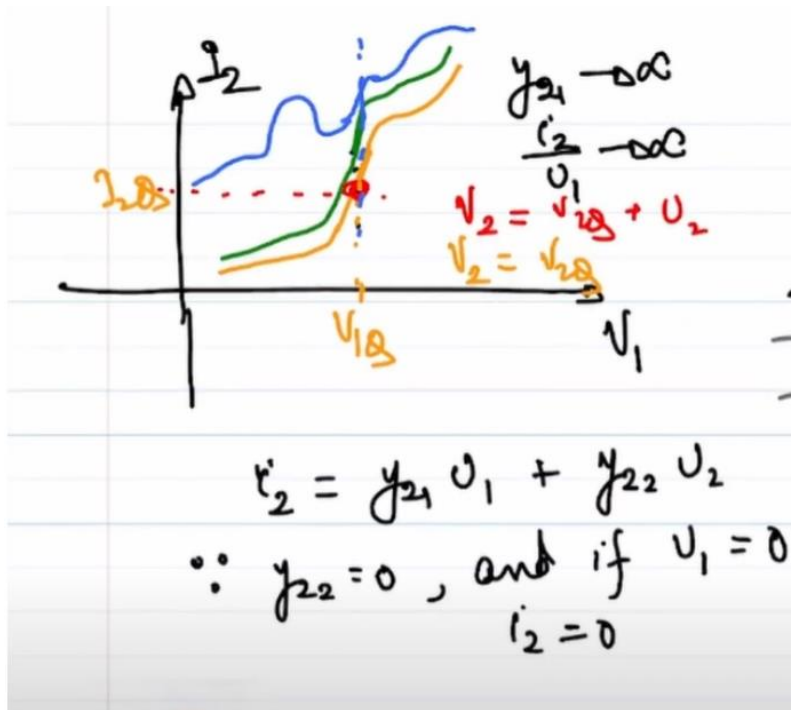 I₂
y₂₁ → ∞
i₂/υ₁ → ∞
I₂Q
V₂ = V₂Q + υ₂
V₂ = V₂Q
V₁Q
V₁
i₂ = y₂₁ υ₁ + y₂₂ υ₂
∵ y₂₂ = 0, and if υ₁ = 0
i₂ = 0